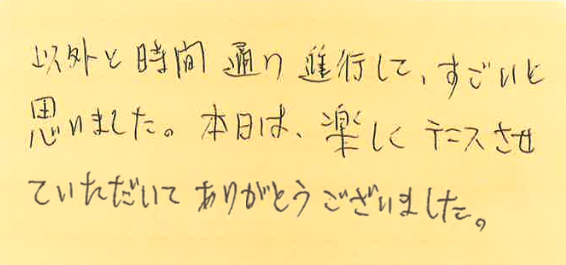 以外と時間通り進行して、すごいと
思いました。本日は、楽しくテニスさせ
ていただいてありがとうございました。